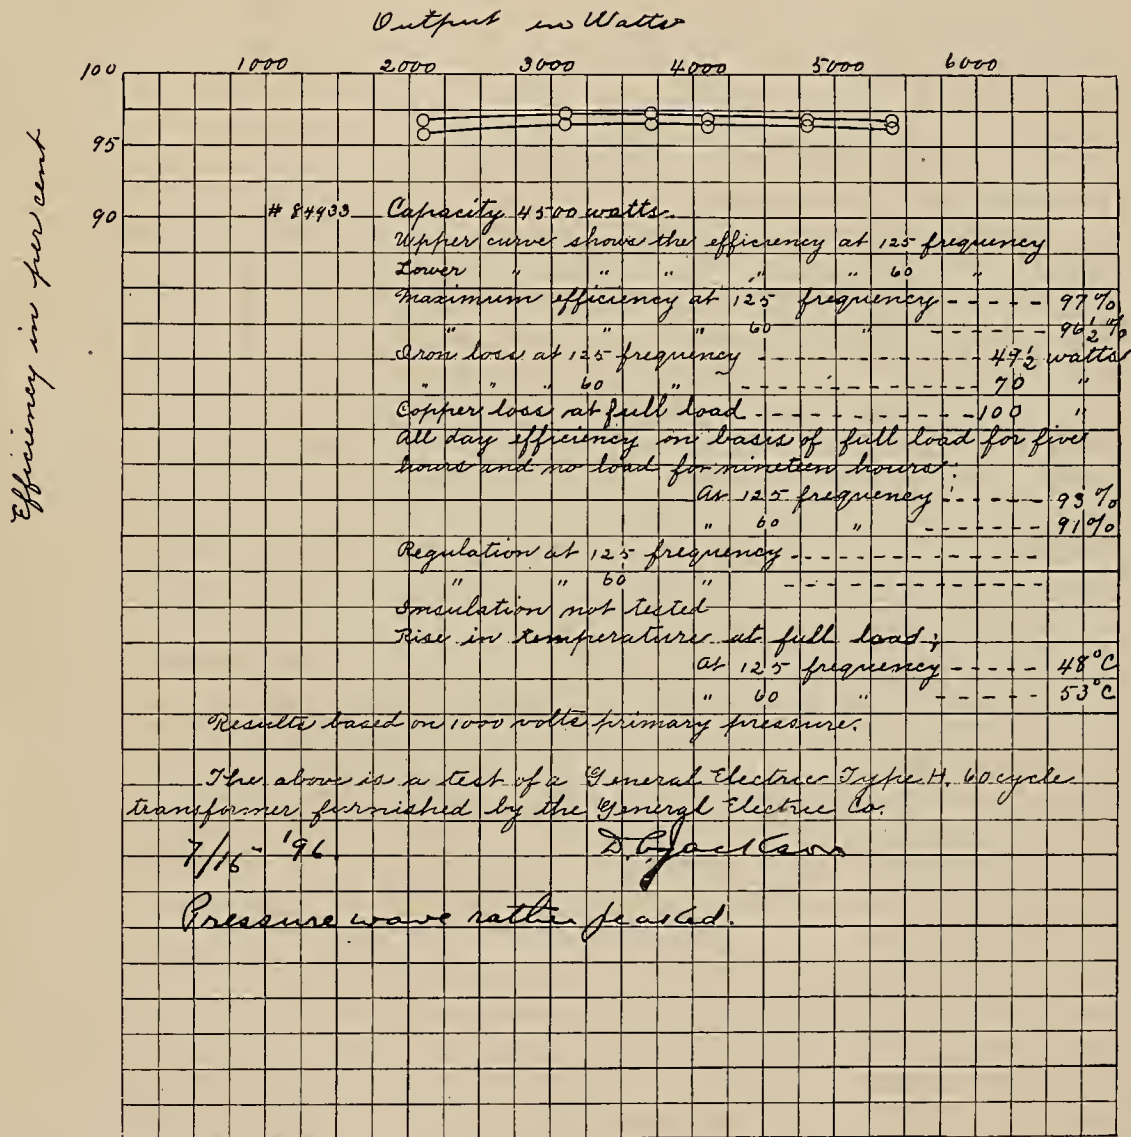 Output in Watts
1000 2000 3000 4000 5000 6000
100
95
90
Efficiency in per cent
# 84933 Capacity 4500 watts.
Upper curve shows the efficiency at 125 frequency
Lower " " " " " 60 "
Maximum efficiency at 125 frequency - - - - - 97%
" " " 60 " - - - - - - 96 1/2 %
Iron loss at 125 frequency - - - - - - - - - - 49 1/2 watts
" " " 60 " - - - - - - - - - - - 70 "
Copper loss at full load - - - - - - - - - - 100 "
All day efficiency on basis of full load for five
hours and no load for nineteen hours:
At 125 frequency - - - - - - 93%
" 60 " - - - - - - 91%
Regulation at 125 frequency - - - - - - - - - - - - -
" " 60 " - - - - - - - - - - - - -
Insulation not tested
Rise in temperature at full load;
At 125 frequency - - - - - 48°C
" 60 " - - - - - 53°C
Results based on 1000 volts primary pressure.
The above is a test of a General Electric Type H. 60 cycle
transformer furnished by the General Electric Co.
7/16 - '96. D. C. Jackson
Pressure wave rather peaked.